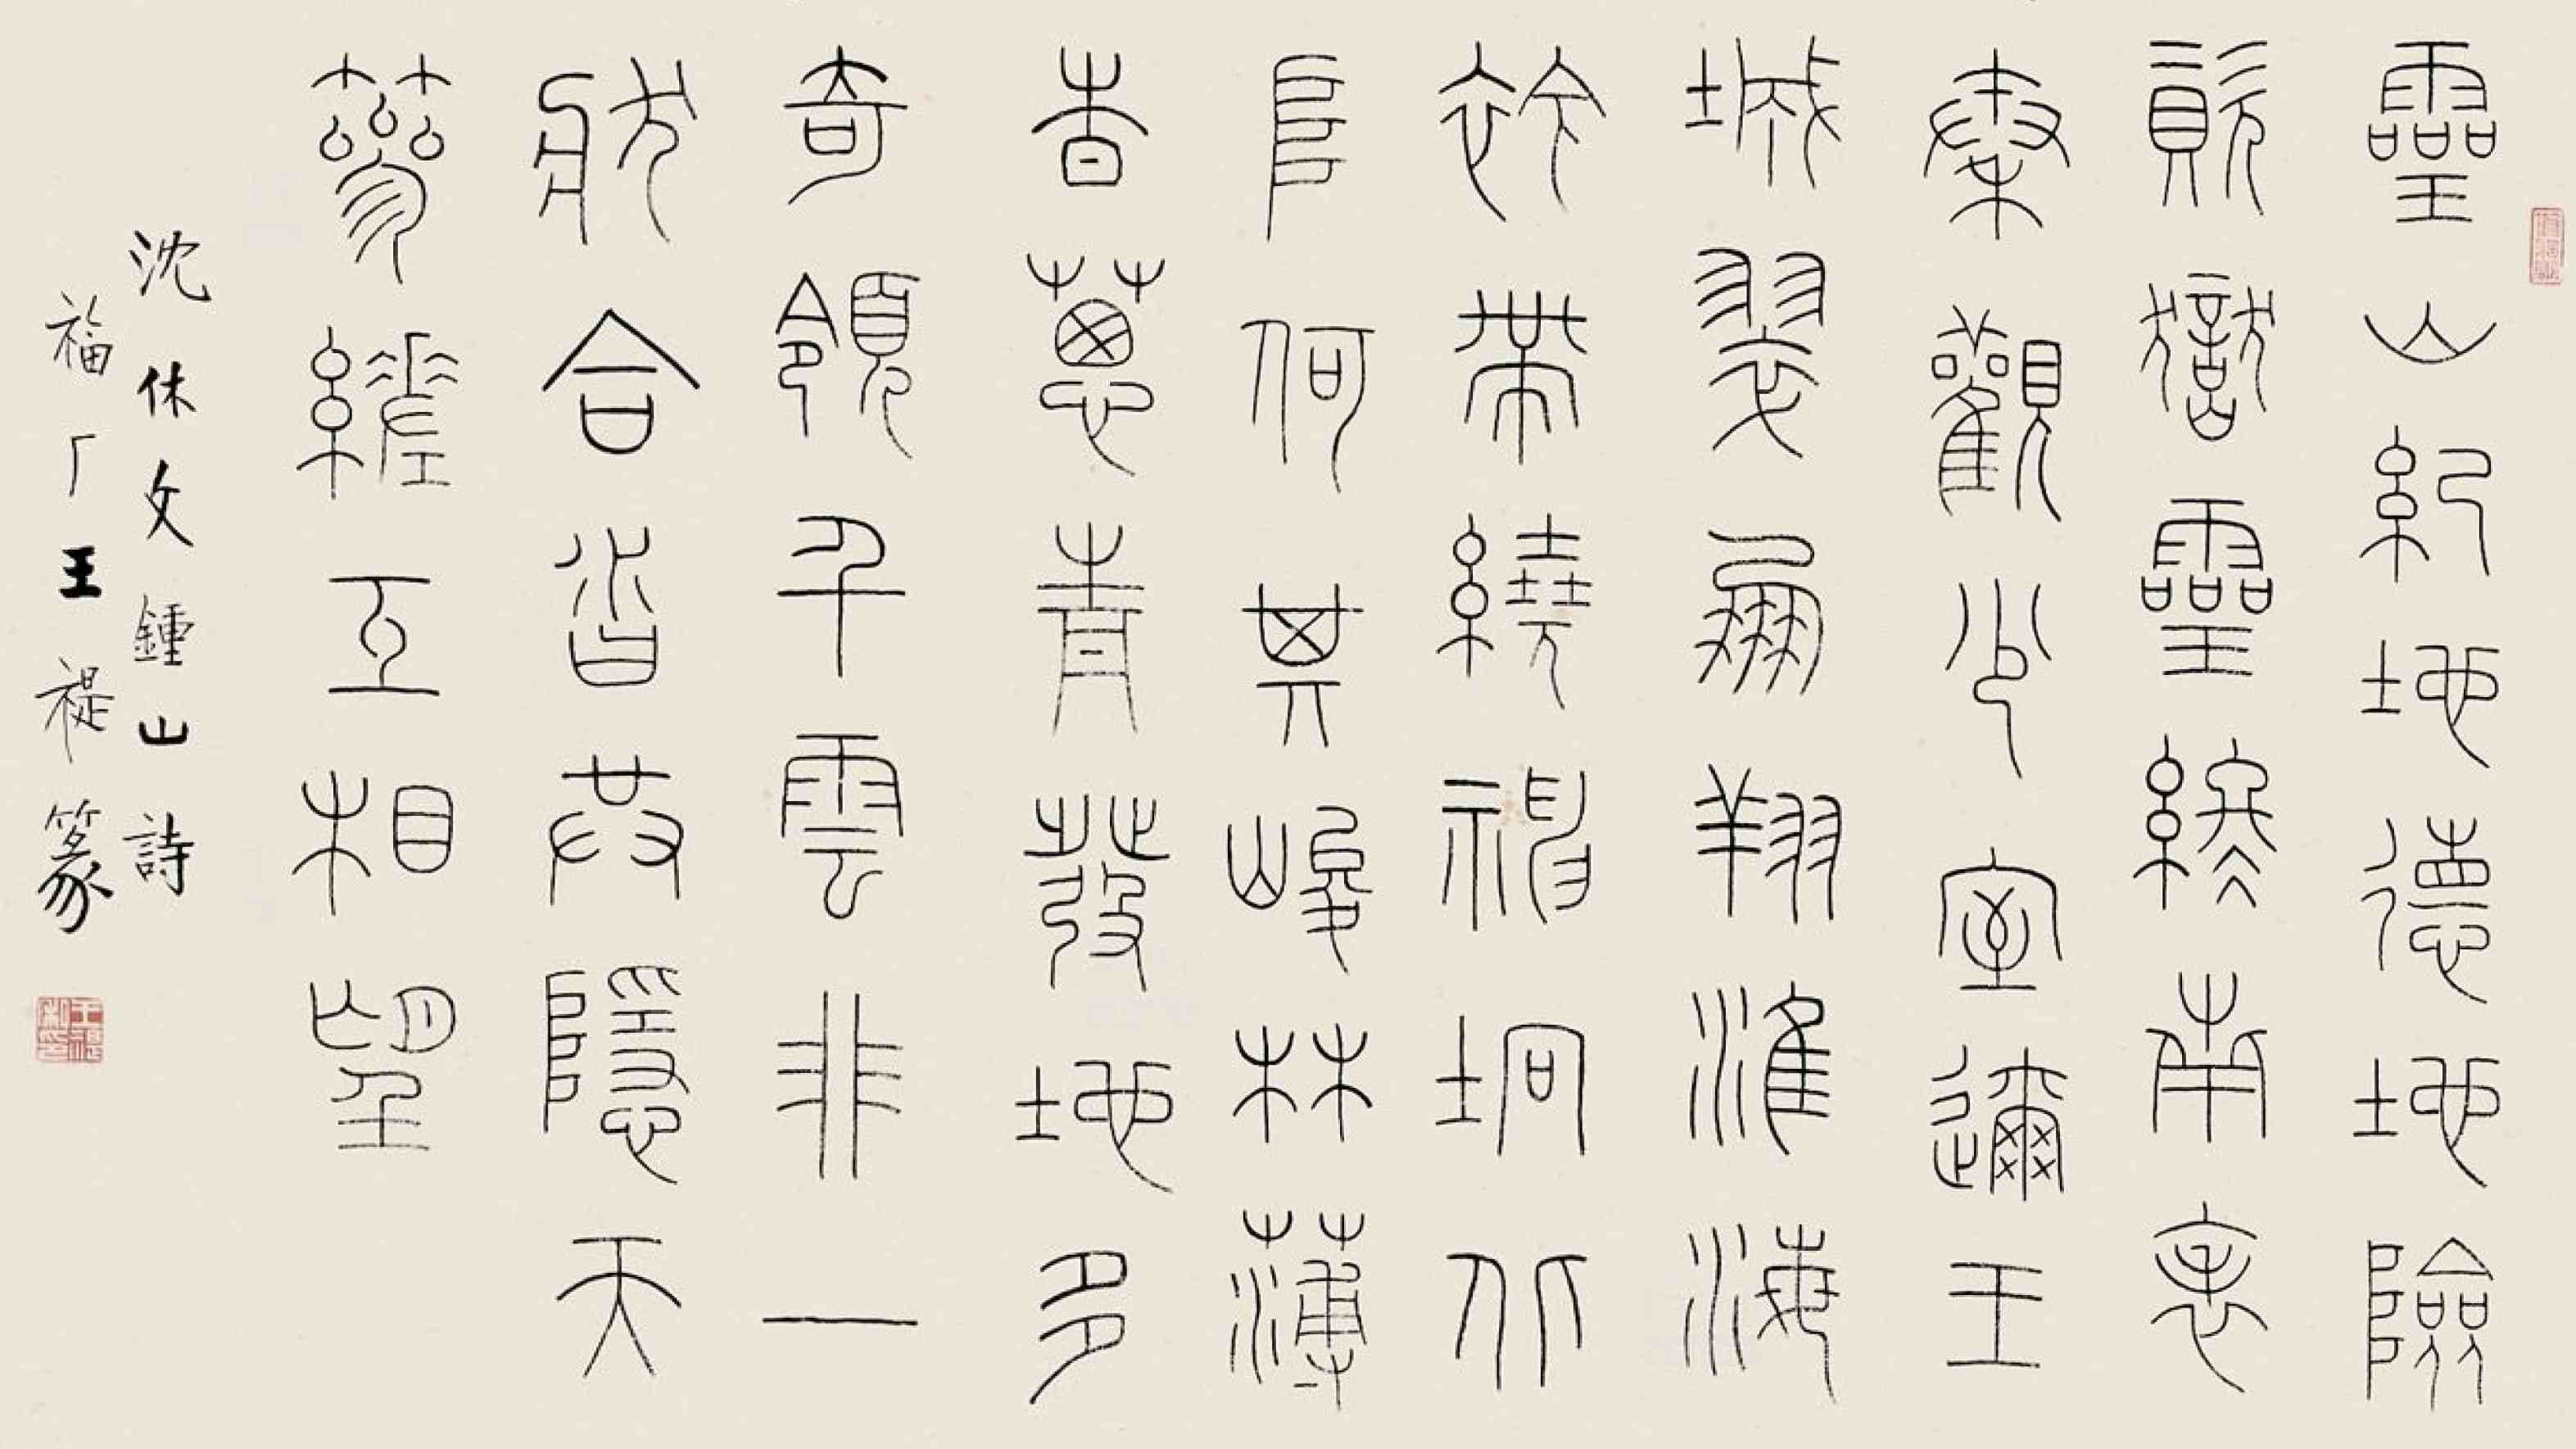 靈山紀地德地險
資嶽靈終南表
秦觀少室邇王
城翠鳳翔淮海
衿帶繞神坰北
阜何其峻林薄
杳蔥青發地多
奇領干雲非一
狀合沓共隱天
蔘縒互相望
沈休文鍾山詩
福厂王禔篆